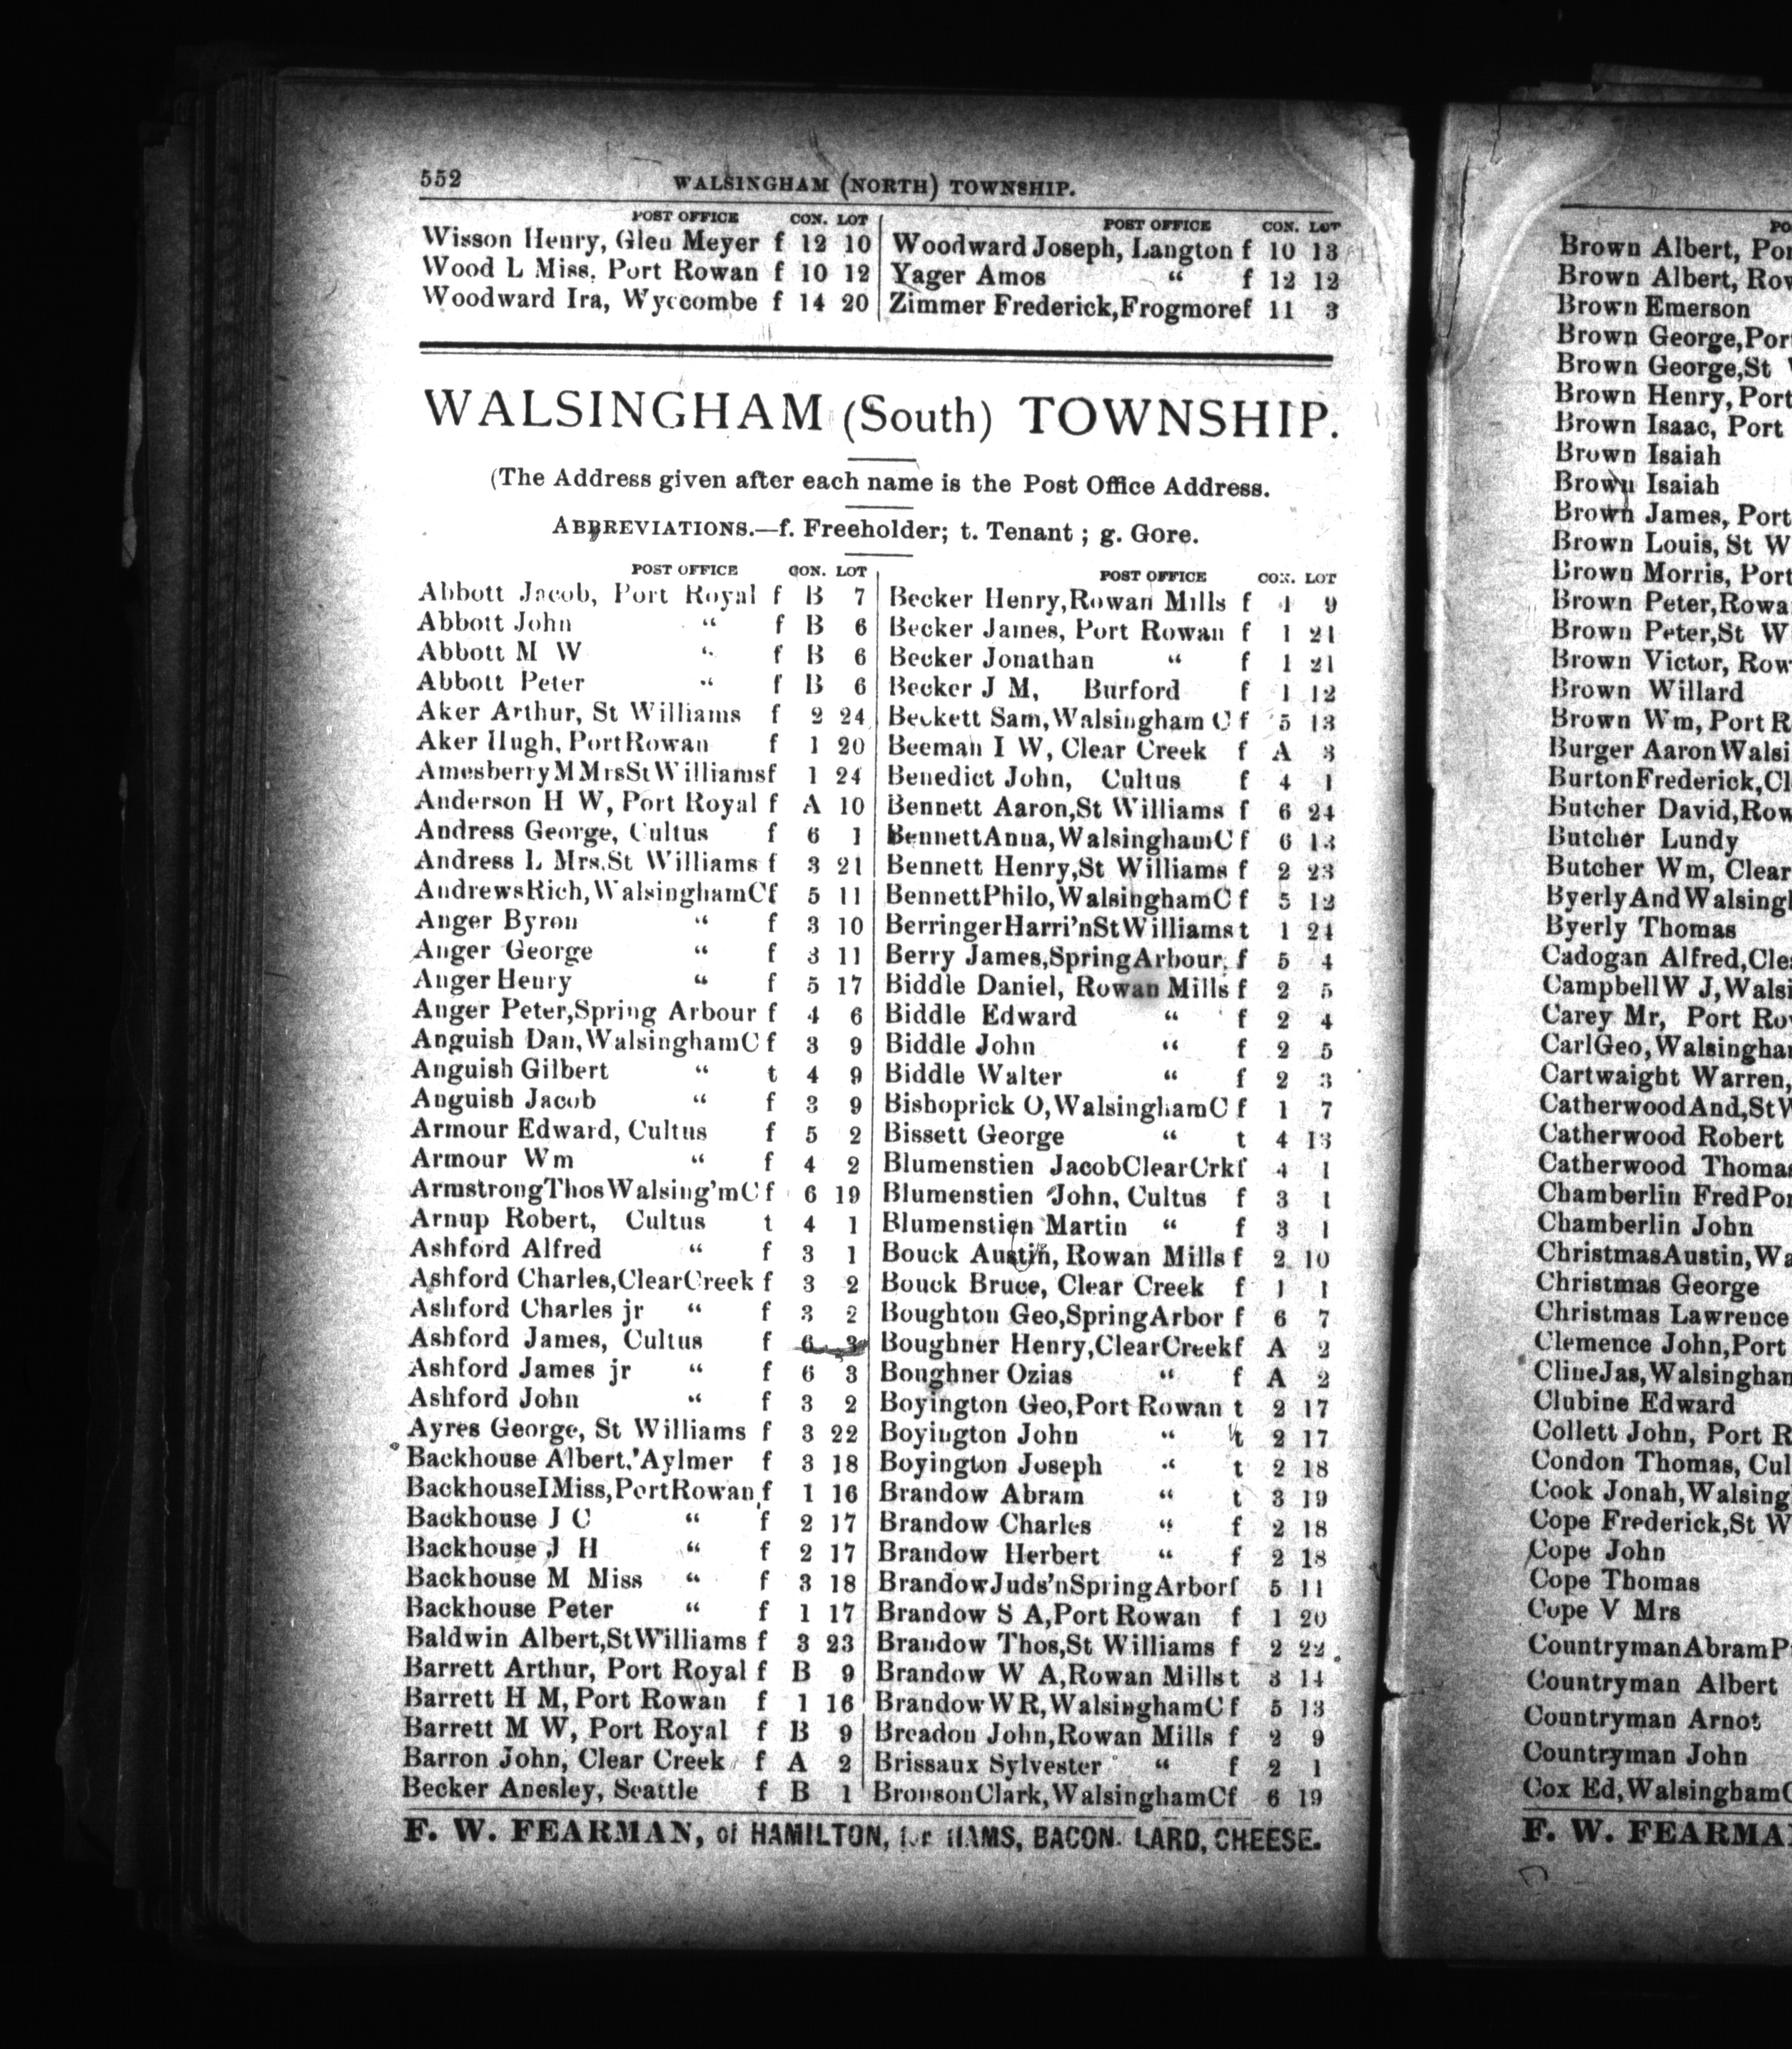 552 WALSINGHAM (NORTH) TOWNSHIP.
POST OFFICE CON. LOT
Wisson Henry, Glen Meyer f 12 10
Wood L Miss, Port Rowan f 10 12
Woodward Ira, Wyecombe f 14 20
POST OFFICE CON. LOT
Woodward Joseph, Langton f 10 13
Yager Amos " f 12 12
Zimmer Frederick,Frogmore f 11 3
WALSINGHAM (South) TOWNSHIP.
(The Address given after each name is the Post Office Address.
ABBREVIATIONS.—f. Freeholder; t. Tenant ; g. Gore.
POST OFFICE CON. LOT
Abbott Jacob, Port Royal f B 7
Abbott John " f B 6
Abbott M W " f B 6
Abbott Peter " f B 6
Aker Arthur, St Williams f 2 24
Aker Hugh, PortRowan f 1 20
AmesberryMMrsStWilliamsf 1 24
Anderson H W, Port Royal f A 10
Andress George, Cultus f 6 1
Andress L Mrs,St Williams f 3 21
AndrewsRich,WalsinghamCf 5 11
Anger Byron " f 3 10
Anger George " f 3 11
Anger Henry " f 5 17
Anger Peter,Spring Arbour f 4 6
Anguish Dan,WalsinghamC f 3 9
Anguish Gilbert " t 4 9
Anguish Jacob " f 3 9
Armour Edward, Cultus f 5 2
Armour Wm " f 4 2
ArmstrongThosWalsing'mC f 6 19
Arnup Robert, Cultus t 4 1
Ashford Alfred " f 3 1
Ashford Charles,ClearCreek f 3 2
Ashford Charles jr " f 3 2
Ashford James, Cultus f 6 3
Ashford James jr " f 6 3
Ashford John " f 3 2
Ayres George, St Williams f 3 22
Backhouse Albert, Aylmer f 3 18
BackhouseIMiss,PortRowan f 1 16
Backhouse J C " f 2 17
Backhouse J H " f 2 17
Backhouse M Miss " f 3 18
Backhouse Peter " f 1 17
Baldwin Albert,StWilliams f 3 23
Barrett Arthur, Port Royal f B 9
Barrett H M, Port Rowan f 1 16
Barrett M W, Port Royal f B 9
Barron John, Clear Creek f A 2
Becker Anesley, Seattle f B 1
POST OFFICE CON. LOT
Becker Henry,Rowan Mills f 1 9
Becker James, Port Rowan f 1 21
Becker Jonathan " f 1 21
Becker J M, Burford f 1 12
Beckett Sam,Walsingham C f 5 13
Beeman I W, Clear Creek f A 3
Benedict John, Cultus f 4 1
Bennett Aaron,St Williams f 6 24
BennettAnna,WalsinghamC f 6 13
Bennett Henry,St Williams f 2 23
BennettPhilo,WalsinghamC f 5 12
BerringerHarri'nStWilliams t 1 24
Berry James,SpringArbour, f 5 4
Biddle Daniel, Rowan Mills f 2 5
Biddle Edward " f 2 4
Biddle John " f 2 5
Biddle Walter " f 2 3
Bishoprick O,WalsinghamC f 1 7
Bissett George " t 4 13
Blumenstien JacobClearCrkf 4 1
Blumenstien John, Cultus f 3 1
Blumenstien Martin " f 3 1
Bouck Austin, Rowan Mills f 2 10
Bouck Bruce, Clear Creek f 1 1
Boughton Geo,SpringArbor f 6 7
Boughner Henry,ClearCreekf A 2
Boughner Ozias " f A 2
Boyington Geo,Port Rowan t 2 17
Boyington John " t 2 17
Boyington Joseph " t 2 18
Brandow Abram " t 3 19
Brandow Charles " f 2 18
Brandow Herbert " f 2 18
BrandowJuds'nSpringArborf 5 11
Brandow S A,Port Rowan f 1 20
Brandow Thos,St Williams f 2 22
Brandow W A,Rowan Mills t 3 14
BrandowWR,WalsinghamC f 5 13
Breadon John,Rowan Mills f 2 9
Brissaux Sylvester " f 2 1
BronsonClark,WalsinghamCf 6 19
F. W. FEARMAN, of HAMILTON, for HAMS, BACON. LARD, CHEESE.
Brown Albert,
Brown Albert,
Brown Emerson
Brown George,
Brown George,St
Brown Henry, Port
Brown Isaac, Port
Brown Isaiah
Brown Isaiah
Brown James, Port
Brown Louis, St W
Brown Morris, Port
Brown Peter,Rowa
Brown Peter,St W
Brown Victor, Row
Brown Willard
Brown Wm, Port R
Burger AaronWalsi
BurtonFrederick,Cl
Butcher David,Row
Butcher Lundy
Butcher Wm, Clear
ByerlyAndWalsing
Byerly Thomas
Cadogan Alfred,Cle
CampbellW J,Walsi
Carey Mr, Port Ro
CarlGeo,Walsingha
Cartwaight Warren,
CatherwoodAnd,St
Catherwood Robert
Catherwood Thomas
Chamberlin FredPo
Chamberlin John
ChristmasAustin,Wa
Christmas George
Christmas Lawrence
Clemence John,Port
ClineJas,Walsingham
Clubine Edward
Collett John, Port R
Condon Thomas, Cul
Cook Jonah,Walsing
Cope Frederick,St W
Cope John
Cope Thomas
Cope V Mrs
CountrymanAbramP
Countryman Albert
Countryman Arnot
Countryman John
Cox Ed,WalsinghamC
F. W. FEARMA